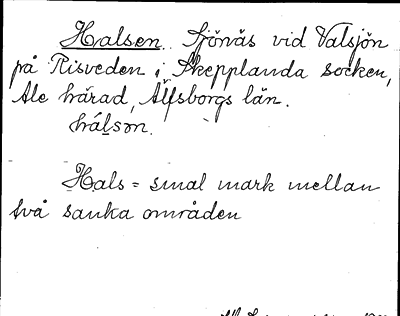 Halsen. Sjönäs vid Valsjön
på Risveden i Skepplanda socken,
Ale härad, Älfsborgs län.
hálsən.
Hals = smal mark mellan
två sanka områden